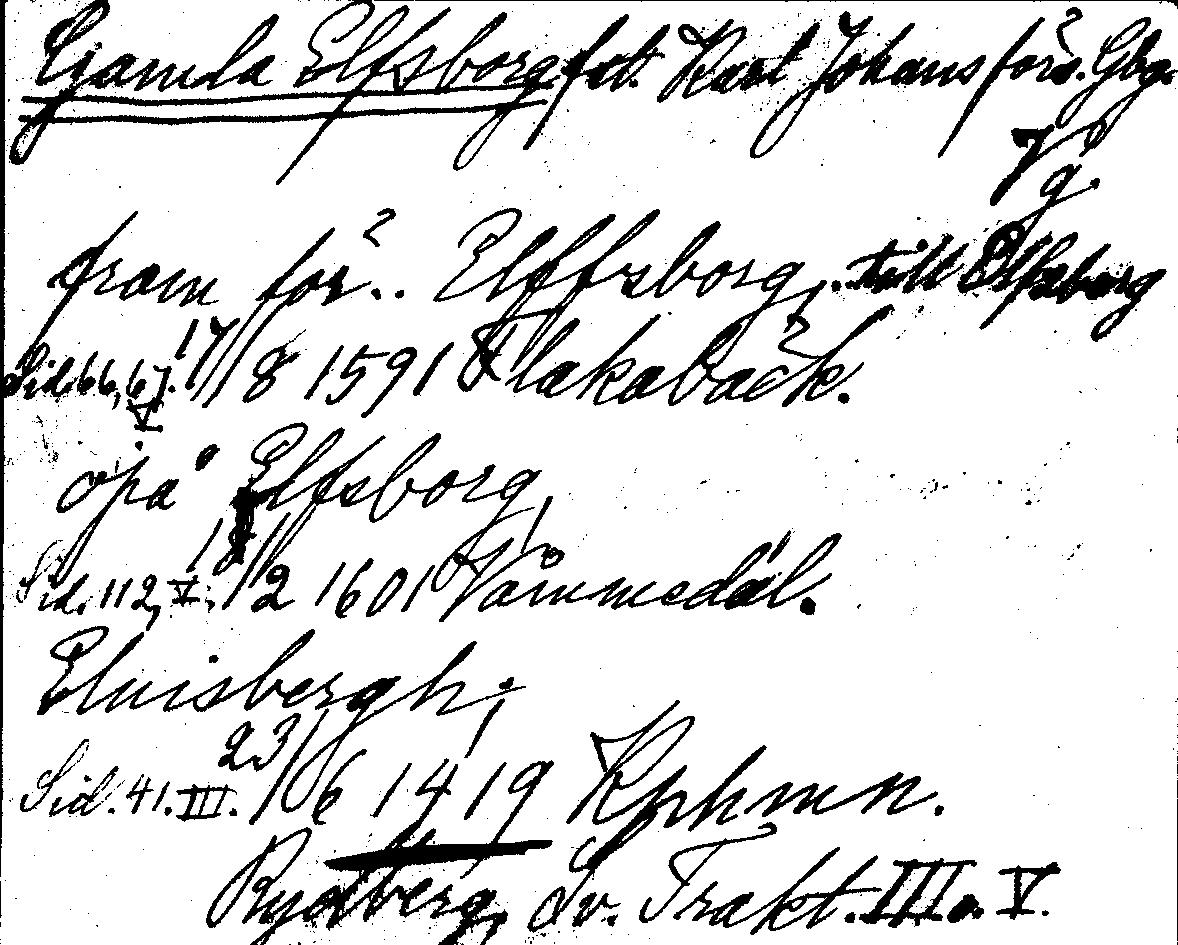 Gamla Elfsborg fstl. Karl Johans förs. Gbg.
Vg.
fram för.. Elffsborg, till Elfsborg
Sid. 66, 67. V. 17/8 1591 Flakabäck.
opå Elfsborg,
Sid. 112, V. 18/2 1601 Våmmedal.
Eluisbergh,
Sid. 41. III. 23/6 1419 Kphmn.
Rydberg, Sv. Trakt. III o. V.